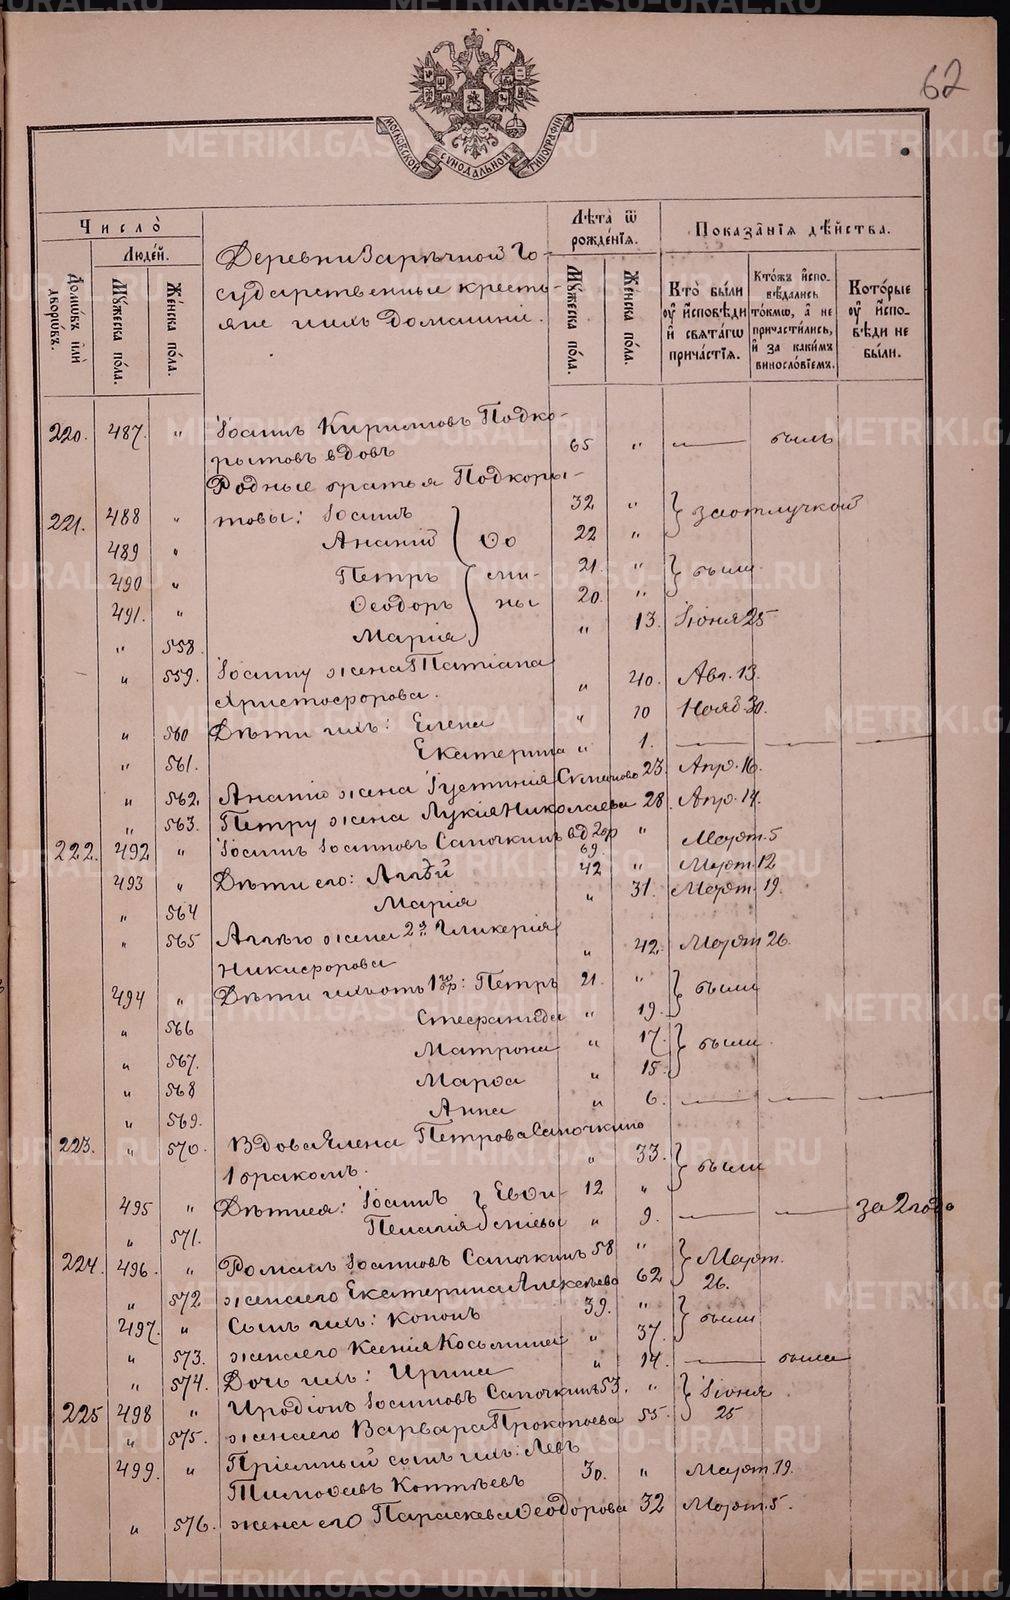 62
МОСКОВСКОЙ СУНОДАЛЬНОЙ ТИПОГРАФИИ
Число̀
Люде́й.
Домѡ́въ и҆лѝ дворѡ́въ.
Мꙋ́жеска по́ла.
Же́нска по́ла.
Деревни Зарѣчной Го-
сударственные кресть-
яне и ихъ домашніе.
Лѣ́та ѿ рожде́нїѧ.
Мꙋ́жеска по́ла.
Же́нска по́ла.
Показа̑нїѧ дѣ́йства.
Кто̀ бы́ли ᲂу҆ и҆́сповѣди и҆ свѧта́гѡ прича́стїѧ.
Кто́жъ и҆спо-вѣ́дались то́кмѡ, а҆ не причасти́лись, и҆ за каки́мъ винослѡ́вїемъ.
Кото́рые ᲂу҆ и҆́спо-вѣди не бы́ли.
220. 487. " Іоаннъ Кирилловъ Подко-
рытовъ вдовъ 65 " — былъ
Родные братья Подкоры-
221. 488 " товы: Іоаннъ 32 " заотлучкой
489 " Ананій Ѳо 22 "
490 " Петръ ми- 21. " были
491. " Ѳеодоръ ны 20. "
" 558. Марія " 13. Іюня 25
" 559. Іоанну жена Татіана
Христофорова. " 40. Авг. 13.
" 560 Дѣти ихъ: Елена " 10 Нояб. 30.
" 561. Екатерина " 1. — — —
" 562. Ананію жена Іустинія 23. Апр. 16.
" 563. Петру жена Лукія Николаева 28. Апр. 14.
222. 492 " Іоаннъ Іоанновъ Сапочкинъ вд 2бр 69 " Март. 5
493 " Дѣти его: Аггѣй 42 " Март. 12
" 564 Марія " 31. Март. 19.
" 565 Аггѣю жена 2я Гликерія
Никифорова " 42. Март 26.
494 " Дѣти ихъ отъ 1го бр: Петръ 21. " были
" 566 Стефанида " 19.
" 567. Матрона " 17. были.
" 568 Марѳа " 15.
" 569. Анна " 6. — — —
223. " 570. Вдова Елена Петрова Сапочкина
1 бракомъ. " 33. были
495 " Дѣти ея: Іоаннъ Евѳи- 12 "
" 571. Пелагія міевы " 9. — — за 2 года
224. 496. " Романъ Іоанновъ Сапочкинъ 58 " Март.
" 572 жена его Екатерина Алексѣева 62 26.
497. " Сынъ ихъ: Кононъ 39. " были
" 573. жена его Ксенія Косьмина " 37.
" 574. Дочь ихъ: Ирина " 14. — была
225 498 " Иродіонъ Іоанновъ Сапочкинъ 53. " Іюня
" 575. жена его Варвара Прокопьева 55. 25
499. " Пріемный сынъ ихъ: Левъ
Тимоѳеевъ Коптѣевъ 30. " Март. 19.
" 576. жена его Параскева Ѳеодорова 32 Март. 5.
METRIKI.GASO-URAL.RU